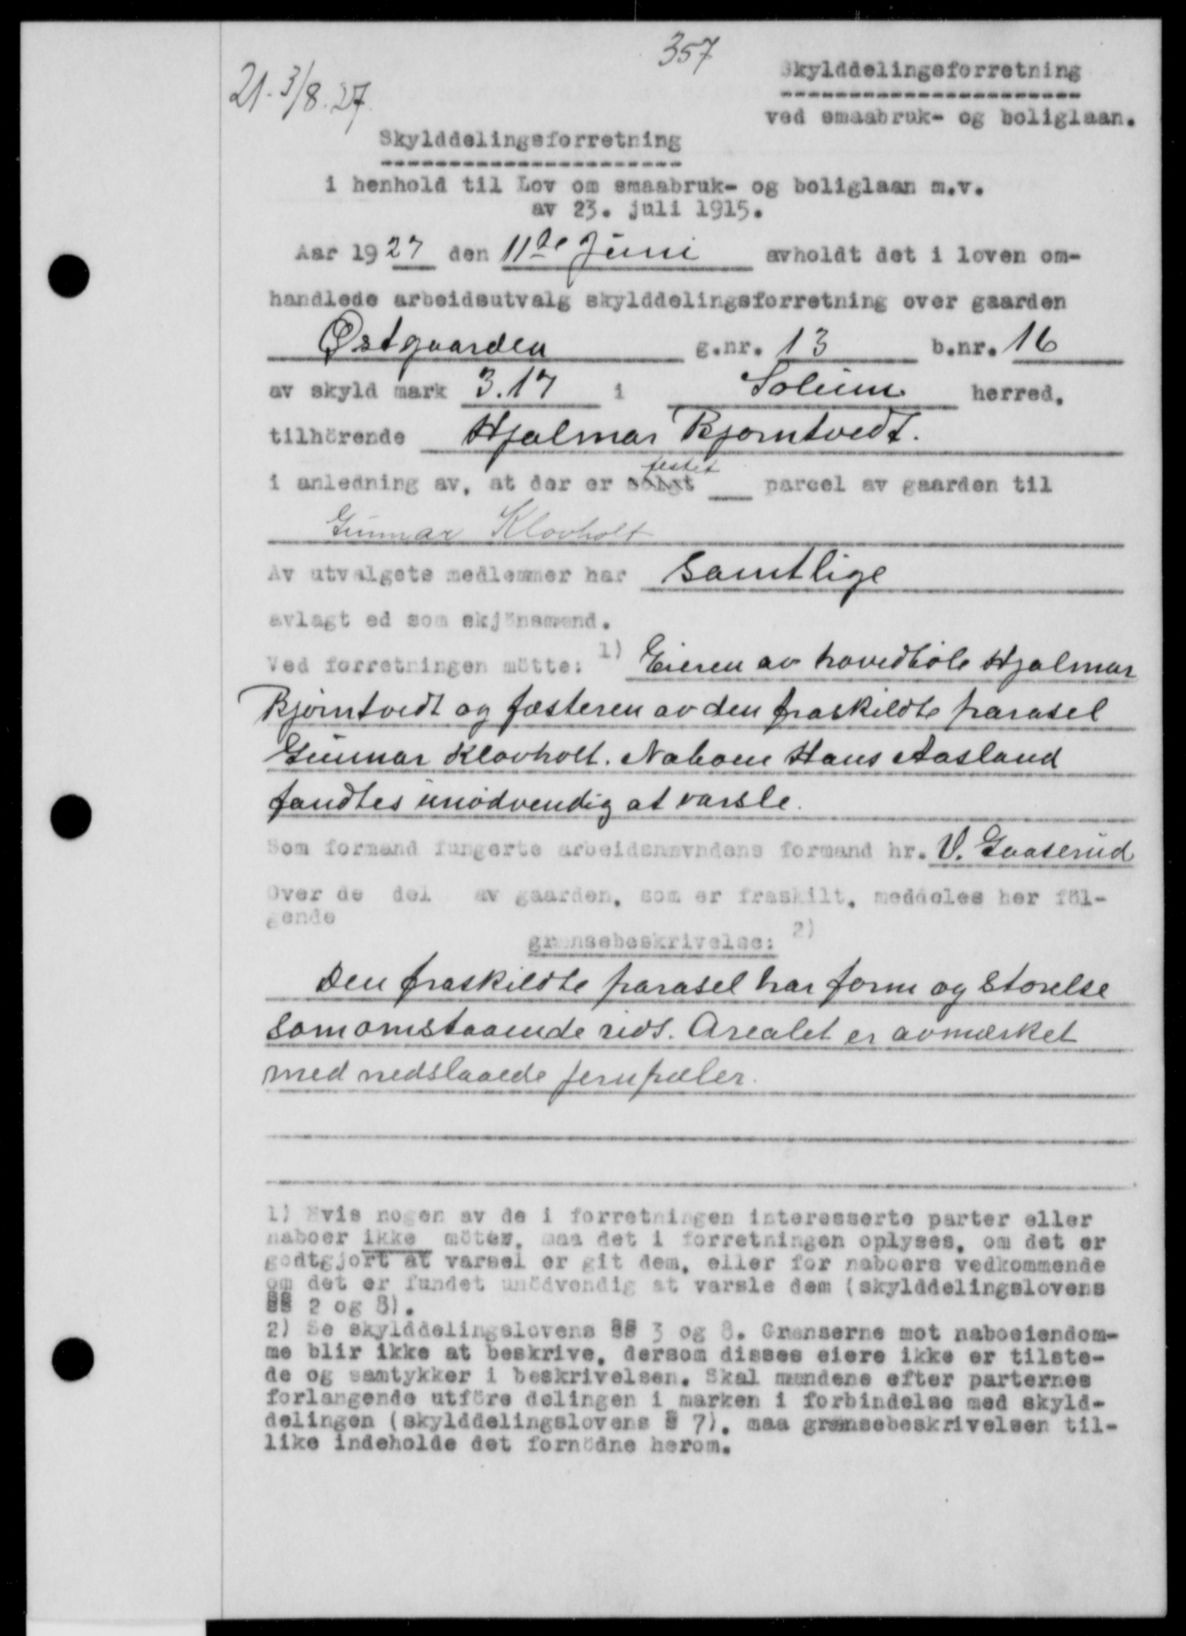 357
21. 3/8. 27.
Skylddelingsforretning
ved smaabruk- og boliglaan.
Skylddelingsforretning
i henhold til Lov om smaabruk- og boliglaan m.v.
av 23. juli 1915.
Aar 1927 den 11de Juni avholdt det i loven om-
handlede arbeidsutvalg skylddelingsforretning over gaarden
Østgaarden g.nr. 13 b.nr. 16
av skyld mark 3.17 i Solum herred,
tilhörende Hjalmar Bjørntvedt.
festet
i anledning av, at der er solgt parcel av gaarden til
Gunnar Klovholt
Av utvalgets medlemmer har samtlige
avlagt ed som skjönsmænd.
Ved forretningen mötte: 1) Eieren av hovedbøle Hjalmar
Bjørntvedt og fæsteren av den fraskildte parasel
Gunnar Klovholt. Naboen Hans Aasland
fandtes unødvendig at varsle.
Som formand fungerte arbeidsnævndens formand hr. V. Gaaserud
Over de del av gaarden, som er fraskilt, meddeles her föl-
gende
grænsebeskrivelse: 2)
Den fraskildte parasel har form og størelse
som omstaaende rids. Arealet er avmærket
med nedslaaede jernpæler.
1) Hvis nogen av de i forretningen interesserte parter eller
naboer ikke möter, maa det i forretningen oplyses, om det er
godtgjort at varsel er git dem, eller for naboers vedkommende
om det er fundet unödvendig at varsle dem (skylddelingslovens
§§ 2 og 8).
2) Se skylddelingslovens §§ 3 og 8. Grænserne mot naboeiendom-
me blir ikke at beskrive, dersom disses eiere ikke er tilste-
de og samtykker i beskrivelsen. Skal mændene efter parternes
forlangende utföre delingen i marken i forbindelse med skyld-
delingen (skylddelingslovens § 7), maa grænsebeskrivelsen til-
like indeholde det fornödne herom.